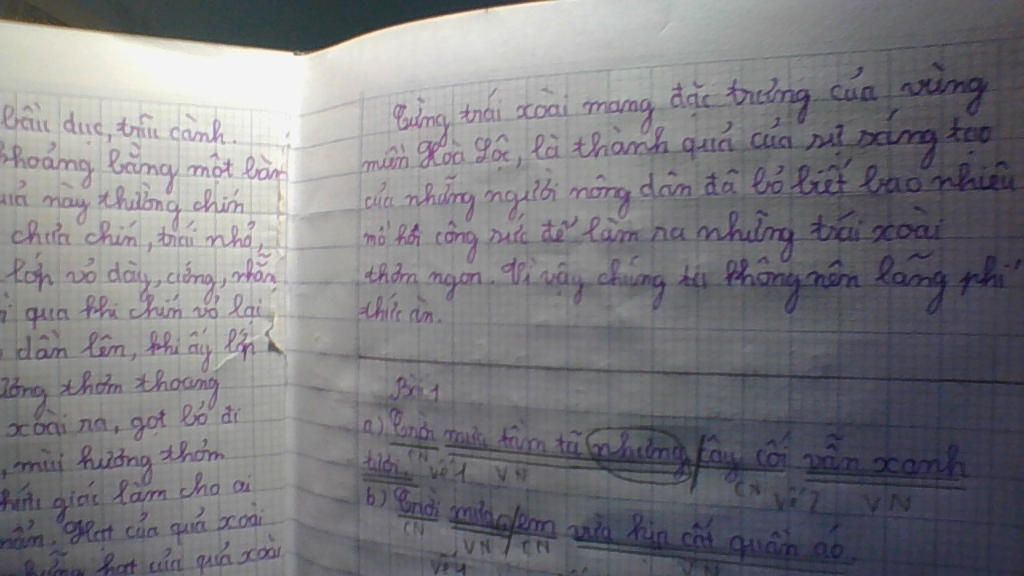 bầu dục, trĩu cành.
khoảng bằng một bàn
quả này thường chín
chưa chín, trái nhỏ,
lớn vỏ dày, cứng, nhẵn
qua khi chín vỏ lại
dần lên, khi ấy lớp
hương thơm thoang
xoài ra, gọt bỏ đi
, mùi hương thơm
thính giác làm cho ai
Hạt của quả xoài
hạt của quả xoài
Từng trái xoài mang đặc trưng của vùng
miền Hoà Lộc, là thành quả của sự sáng tạo
của những người nông dân đã bỏ biết bao nhiêu
mồ hôi công sức để làm ra những trái xoài
thơm ngon. Vì vậy chúng ta không nên lãng phí
thức ăn.
Bài 1
a) Trời mưa tầm tã nhưng / cây cối vẫn xanh
CN VN CN VN
tươi. vế 1 vế 2
b) Trời mưa, / em vừa kịp cất quần áo.
CN VN CN VN
vế 1